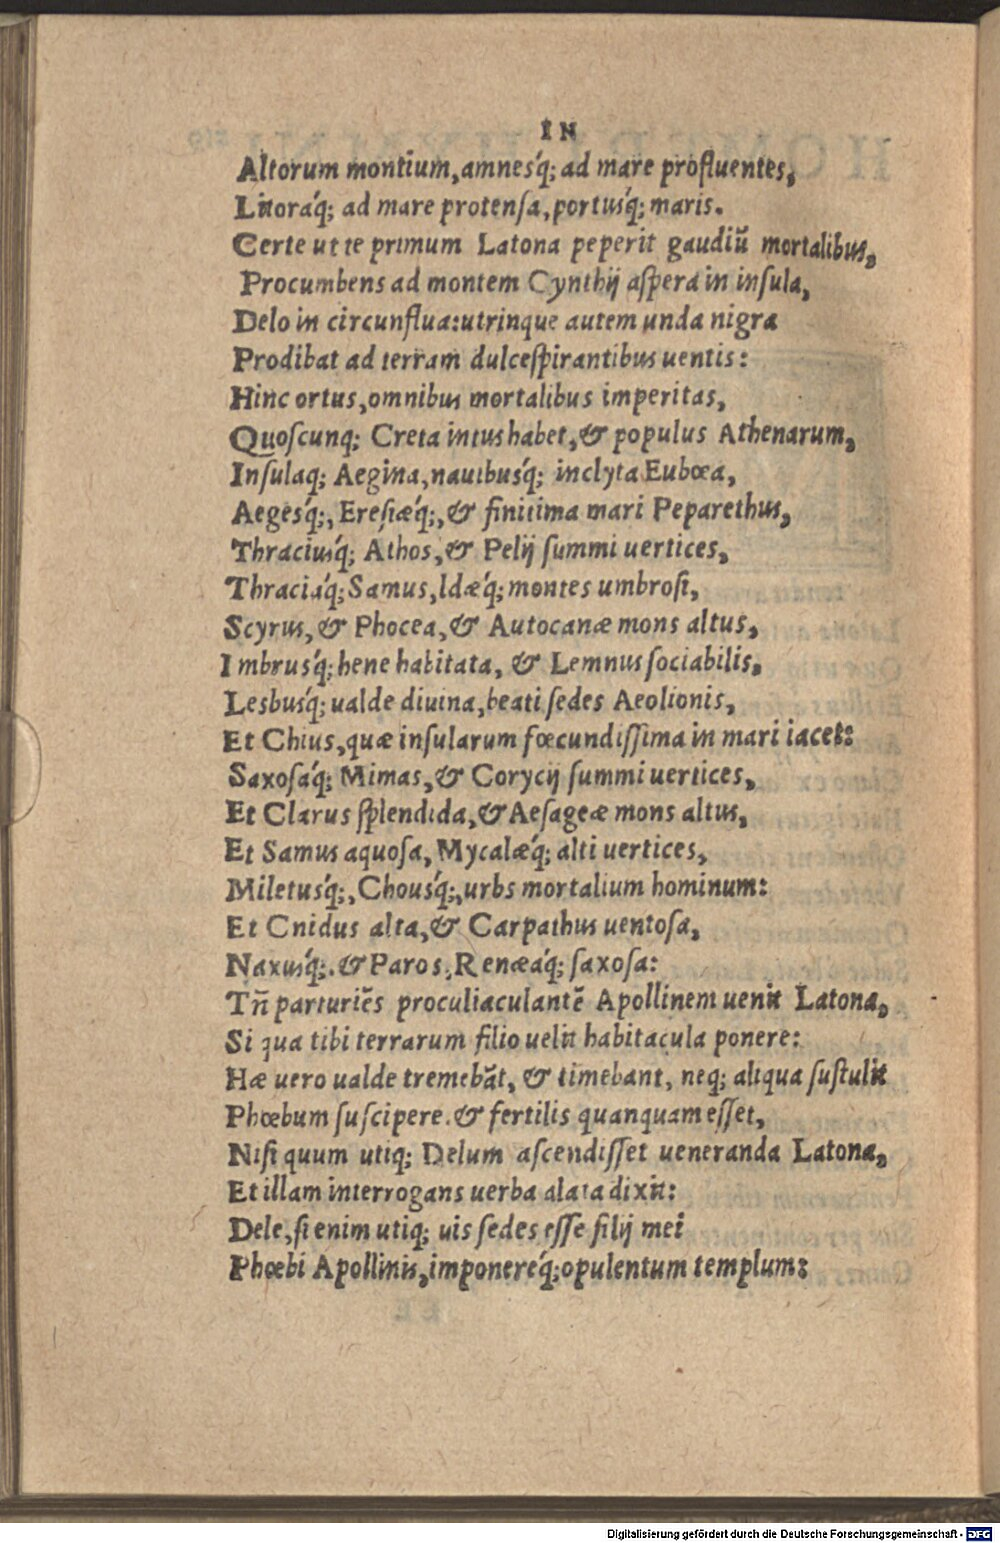 IN
Altorum montium, amnesq́; ad mare profluentes,
Litoraq́; ad mare protensa, portusq́; maris.
Certe ut te primum Latona peperit gaudiũ mortalibus,
Procumbens ad montem Cynthij aspera in insula,
Delo in circunflua: utrinque autem unda nigra
Prodibat ad terram dulcespirantibus uentis:
Hinc ortus, omnibus mortalibus imperitas,
Quoscunq; Creta intus habet, & populus Athenarum,
Insulaq; Aegina, nauibusq́; inclyta Eubœa,
Aegesq́;, Eresiæq́;, & finitima mari Peparethus,
Thraciusq́; Athos, & Pelij summi uertices,
Thraciaq́; Samus, Idæq́; montes umbrosi,
Scyrus, & Phocea, & Autocanæ mons altus,
Imbrusq́; bene habitata, & Lemnus sociabilis,
Lesbusq́; ualde diuina, beati sedes Aeolionis,
Et Chius, quæ insularum fœcundissima in mari iacet:
Saxosaq́; Mimas, & Corycij summi uertices,
Et Clarus splendida, & Aesageæ mons altus,
Et Samus aquosa, Mycalæq́; alti uertices,
Miletusq́;, Chousq́;, urbs mortalium hominum:
Et Cnidus alta, & Carpathus uentosa,
Naxusq́;. & Paros, Renæaq́; saxosa:
Tñ parturiẽs proculiaculantẽ Apollinem uenit Latona,
Si qua tibi terrarum filio uelit habitacula ponere:
Hæ uero ualde tremebãt, & timebant, neq; aliqua sustulit
Phœbum suscipere. & fertilis quanquam esset,
Nisi quum utiq; Delum ascendisset ueneranda Latona,
Et illam interrogans uerba alata dixit:
Dele, si enim utiq; uis sedes esse filij mei
Phœbi Apollinis, imponereq́; opulentum templum:
Digitalisierung gefördert durch die Deutsche Forschungsgemeinschaft - DFG